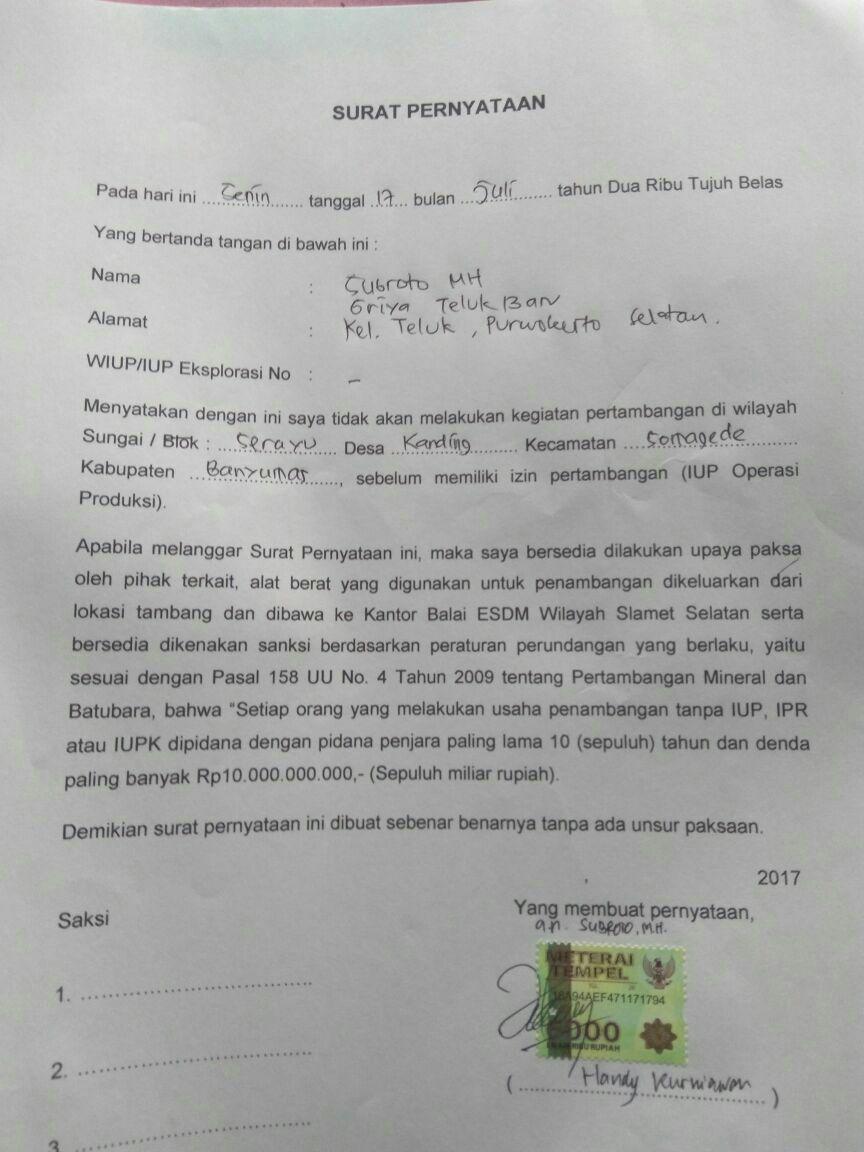 SURAT PERNYATAAN
Pada hari ini ..Senin.. tanggal ..17.. bulan ..Juli.. tahun Dua Ribu Tujuh Belas
Yang bertanda tangan di bawah ini :
Nama : Subroto MH
Griya Teluk Baru
Alamat : Kel. Teluk, Purwokerto Selatan.
WIUP/IUP Eksplorasi No : –
Menyatakan dengan ini saya tidak akan melakukan kegiatan pertambangan di wilayah
Sungai / Blok : ..Serayu.. Desa ..Kanding.. Kecamatan ..Somagede..
Kabupaten ..Banyumas.., sebelum memiliki izin pertambangan (IUP Operasi
Produksi).
Apabila melanggar Surat Pernyataan ini, maka saya bersedia dilakukan upaya paksa
oleh pihak terkait, alat berat yang digunakan untuk penambangan dikeluarkan dari
lokasi tambang dan dibawa ke Kantor Balai ESDM Wilayah Slamet Selatan serta
bersedia dikenakan sanksi berdasarkan peraturan perundangan yang berlaku, yaitu
sesuai dengan Pasal 158 UU No. 4 Tahun 2009 tentang Pertambangan Mineral dan
Batubara, bahwa “Setiap orang yang melakukan usaha penambangan tanpa IUP, IPR
atau IUPK dipidana dengan pidana penjara paling lama 10 (sepuluh) tahun dan denda
paling banyak Rp10.000.000.000,- (Sepuluh miliar rupiah).
Demikian surat pernyataan ini dibuat sebenar benarnya tanpa ada unsur paksaan.
2017
Saksi
Yang membuat pernyataan,
an. SUBROTO, M.H.
METERAI
TEMPEL
94AEF471171794
6000
RIBU RUPIAH
1. ..........
2. ..........
(Handy Kurniawan)
3. ..........